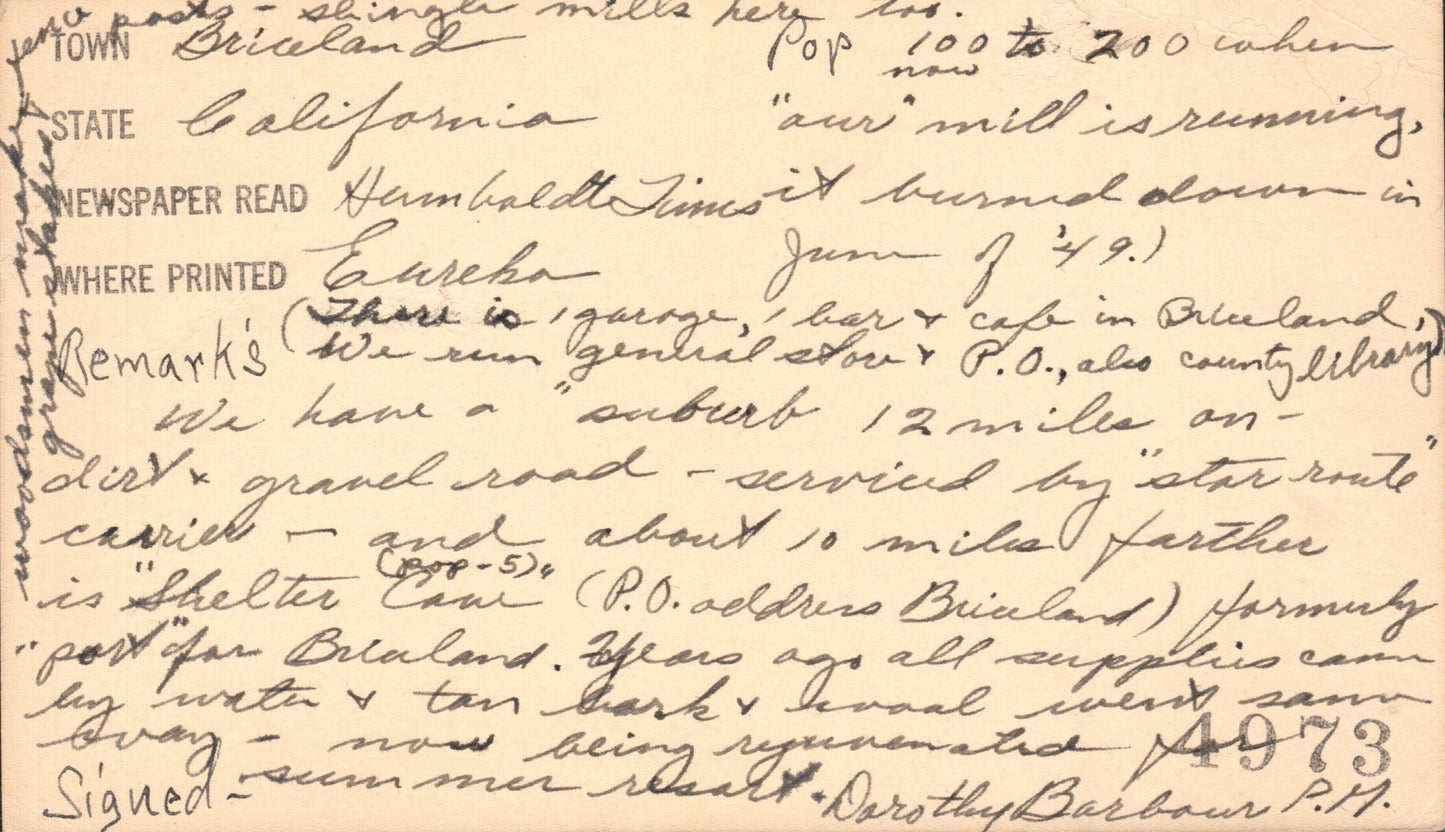 posts - shingle mills here too.
TOWN Briceland Pop 100 to 200 when
now
STATE California "our" mill is running,
NEWSPAPER READ Humboldt Times it burned down in
WHERE PRINTED Eureka June of '49.)
(There is 1 garage, 1 bar & cafe in Briceland,
Remark's We run general store & P.O., also county library)
We have a "suburb 12 miles on-
dirt & gravel road - serviced by "star route"
carrier - and about 10 miles farther
(pop-5)
is "Shelter Cove" (P.O. address Briceland) formerly
"port" for Briceland. Years ago all supplies came
by water & tan bark & wool went same
way - now being rejuvenated for
4973
Signed - summer resort. Dorothy Barbour P.M.
woodsmen make
grape stakes &